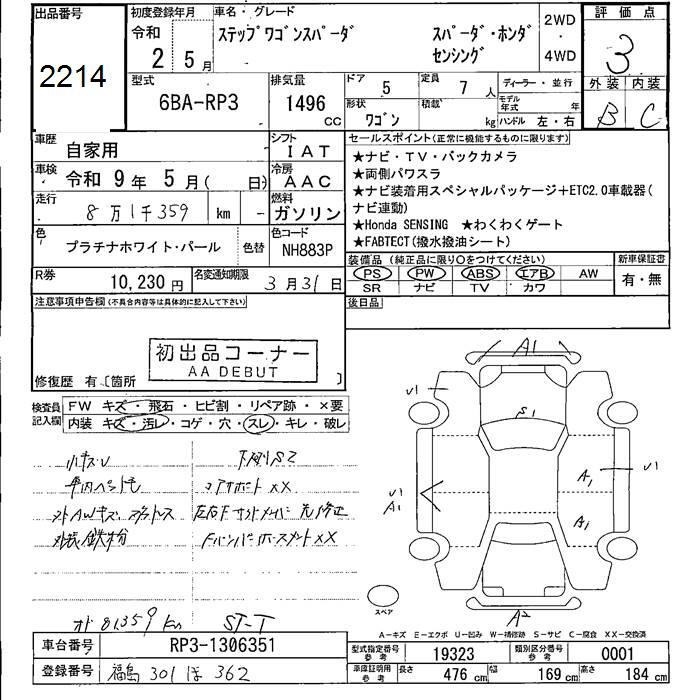 出品番号
2214
初度登録年月
令和
2 5月
車名・グレード
ステップワゴンスパーダ スパーダ・ホンダ
センシング
2WD
・
4WD
評価点
3
外装 内装
B C
型式
6BA-RP3
排気量
1496
CC
ドア 5
形状
ワゴン
定員 7人
積載 kg
ディーラー・並行
モデル年式 年
ハンドル 左・右
車歴
自家用
シフト
IAT
車検
令和 9年 5月( 日)
冷房
AAC
走行
8万1千359 km -
燃料
ガソリン
色
プラチナホワイト・パール
色替
色コード
NH883P
R券
10,230円
名変通知期限
3月31日
セールスポイント(正常に機能するものに限ります)
★ナビ・TV・バックカメラ
★両側パワスラ
★ナビ装着用スペシャルパッケージ+ETC2.0車載器(
ナビ連動)
★Honda SENSING ★わくわくゲート
★FABTECT(撥水撥油シート)
装備品 (純正品に限り〇をつけてください)
PS PW ABS エアB AW
SR ナビ TV カワ
新車保証書
有・無
後日品
注意事項申告欄(不具合内容等は具体的に記入して下さい)
初出品コーナー
AA DEBUT
修復歴 有〔箇所 〕
検査員
記入欄
FW キズ・飛石・ヒビ割・リペア跡・×要
内装 キズ・汚レ・コゲ・穴・スレ・キレ・破レ
小キズU
下廻リS2
車内ペットモ
コアサポートXX
外装鉄粉
オド 81359 km
ST-T
A1
U1
S1
U1
A1
A1
U1
A1
A2
スペア
A-キズ E-エクボ U-凹み W-補修跡 S-サビ C-腐食 XX-交換済
車台番号 RP3-1306351
登録番号 福島 301 ほ 362
型式指定番号
参考
19323
類別区分番号
参考
0001
車庫証明用
参考
長さ 476 cm 幅 169 cm 高さ 184 cm